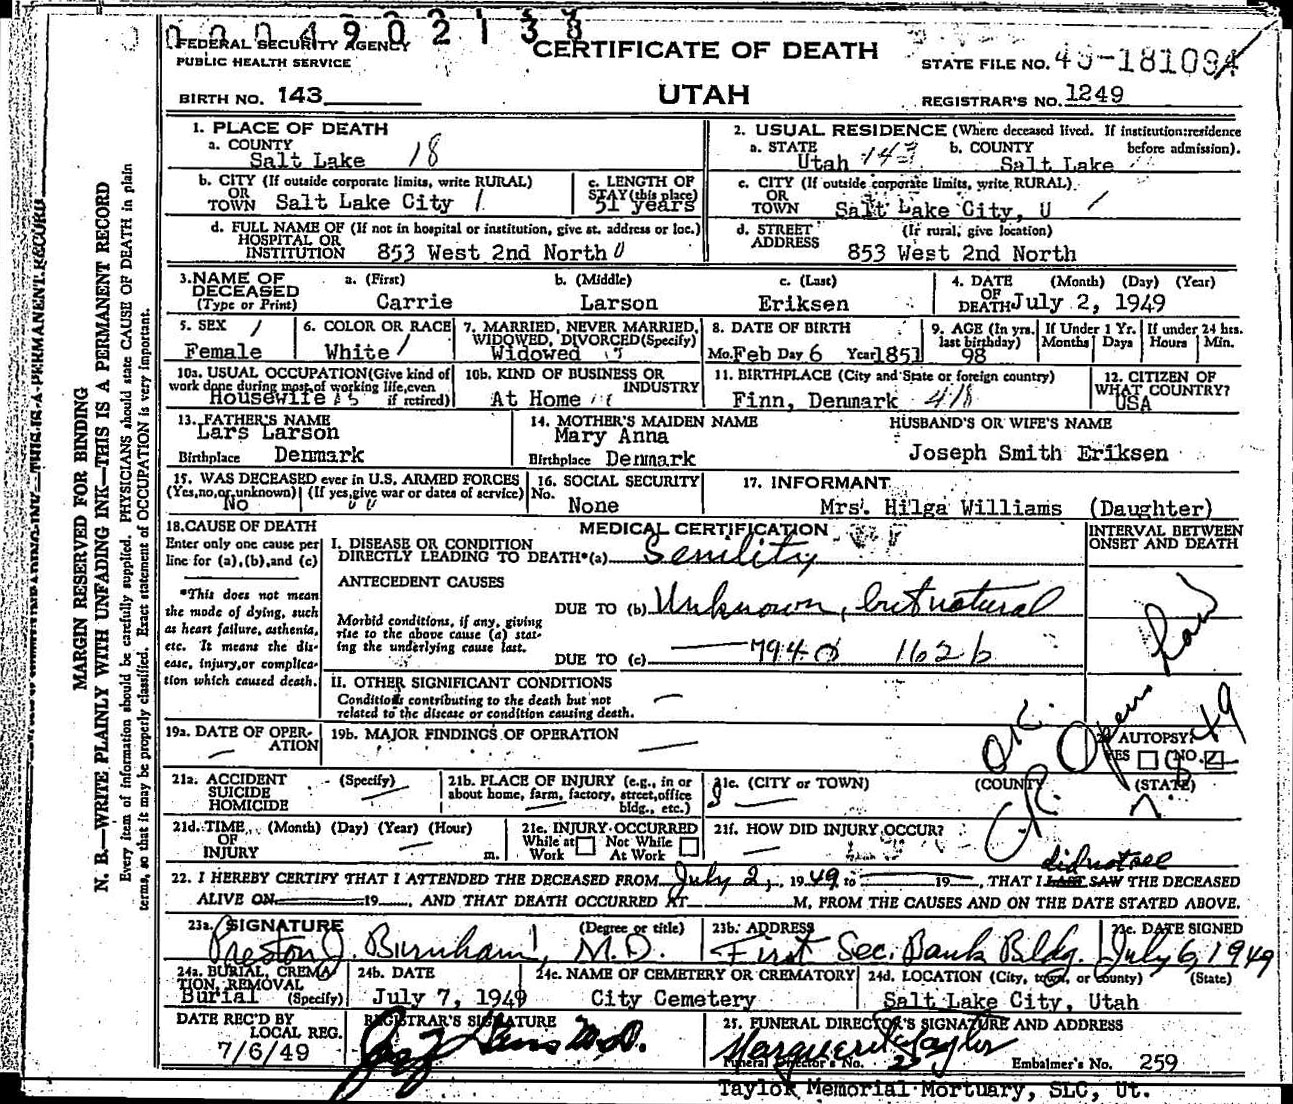 000490213
FEDERAL SECURITY AGENCY
PUBLIC HEALTH SERVICE
CERTIFICATE OF DEATH
STATE FILE NO.
BIRTH NO. 143
UTAH
REGISTRAR'S NO. 1249
MARGIN RESERVED FOR BINDING
N. B.—WRITE PLAINLY WITH UNFADING INK—THIS IS A PERMANENT RECORD
Every item of information should be carefully supplied. PHYSICIANS should state CAUSE OF DEATH in plain
terms, so that it may be properly classified. Exact statement of OCCUPATION is very important.
1. PLACE OF DEATH
a. COUNTY
Salt Lake 18
2. USUAL RESIDENCE (Where deceased lived. If institution:residence
before admission).
a. STATE
Utah 143
b. COUNTY
Salt Lake
b. CITY (If outside corporate limits, write RURAL)
OR
TOWN Salt Lake City 1
c. LENGTH OF
STAY (this place)
51 years
c. CITY (If outside corporate limits, write RURAL)
OR
TOWN Salt Lake City, U
d. FULL NAME OF (If not in hospital or institution, give st. address or loc.)
HOSPITAL OR
INSTITUTION 853 West 2nd North
d. STREET (If rural, give location)
ADDRESS 853 West 2nd North
3. NAME OF
DECEASED
(Type or Print)
a. (First)
Carrie
b. (Middle)
Larson
c. (Last)
Eriksen
4. DATE (Month) (Day) (Year)
OF
DEATH July 2, 1949
5. SEX
Female
6. COLOR OR RACE
White
7. MARRIED, NEVER MARRIED,
WIDOWED, DIVORCED(Specify)
Widowed
8. DATE OF BIRTH
Mo. Feb Day 6 Year 1851
9. AGE (In yrs.
last birthday)
98
If Under 1 Yr.
Months Days
If under 24 hrs.
Hours Min.
10a. USUAL OCCUPATION(Give kind of
work done during most of working life, even
Housewife if retired)
10b. KIND OF BUSINESS OR
INDUSTRY
At Home
11. BIRTHPLACE (City and State or foreign country)
Finn, Denmark 418
12. CITIZEN OF
WHAT COUNTRY?
USA
13. FATHER'S NAME
Lars Larson
Birthplace Denmark
14. MOTHER'S MAIDEN NAME
Mary Anna
Birthplace Denmark
HUSBAND'S OR WIFE'S NAME
Joseph Smith Eriksen
15. WAS DECEASED ever in U.S. ARMED FORCES
(Yes,no,or unknown) (If yes,give war or dates of service)
No
16. SOCIAL SECURITY
No.
None
17. INFORMANT
Mrs. Hilga Williams (Daughter)
18. CAUSE OF DEATH
Enter only one cause per
line for (a),(b),and (c)
*This does not mean
the mode of dying, such
as heart failure, asthenia,
etc. It means the dis-
ease, injury,or complica-
tion which caused death.
MEDICAL CERTIFICATION
I. DISEASE OR CONDITION
DIRECTLY LEADING TO DEATH*(a) Senility
ANTECEDENT CAUSES
DUE TO (b) Unknown, but natural
Morbid conditions, if any, giving
rise to the above cause (a) stat-
ing the underlying cause last.
DUE TO (c) 162b
II. OTHER SIGNIFICANT CONDITIONS
Conditions contributing to the death but not
related to the disease or condition causing death.
INTERVAL BETWEEN
ONSET AND DEATH
O.K.
49
19a. DATE OF OPER-
ATION
19b. MAJOR FINDINGS OF OPERATION
AUTOPSY?
YES NO
21a. ACCIDENT (Specify)
SUICIDE
HOMICIDE
21b. PLACE OF INJURY (e.g., in or
about home, farm, factory, street,office
bldg., etc.)
21c. (CITY or TOWN) (COUNTY) (STATE)
21d. TIME (Month) (Day) (Year) (Hour)
OF
INJURY m.
21e. INJURY OCCURRED
While at Not While
Work At Work
21f. HOW DID INJURY OCCUR?
did not see
22. I HEREBY CERTIFY THAT I ATTENDED THE DECEASED FROM July 2, 1949 to 19 , THAT I LAST SAW THE DECEASED
ALIVE ON 19 , AND THAT DEATH OCCURRED AT M, FROM THE CAUSES AND ON THE DATE STATED ABOVE.
23a. SIGNATURE (Degree or title)
Preston J. Burnham, M.D.
23b. ADDRESS
First Sec. Bank Bldg.
23c. DATE SIGNED
July 6, 1949
24a. BURIAL, CREMA-
TION, REMOVAL
Burial (Specify)
24b. DATE
July 7, 1949
24c. NAME OF CEMETERY OR CREMATORY
City Cemetery
24d. LOCATION (City, town, or county) (State)
Salt Lake City, Utah
DATE REC'D BY
LOCAL REG.
7/6/49
REGISTRAR'S SIGNATURE
M.D.
25. FUNERAL DIRECTOR'S SIGNATURE AND ADDRESS
Marguerite Taylor
Funeral Director's No. Embalmer's No. 259
Taylor Memorial Mortuary, SLC, Ut.